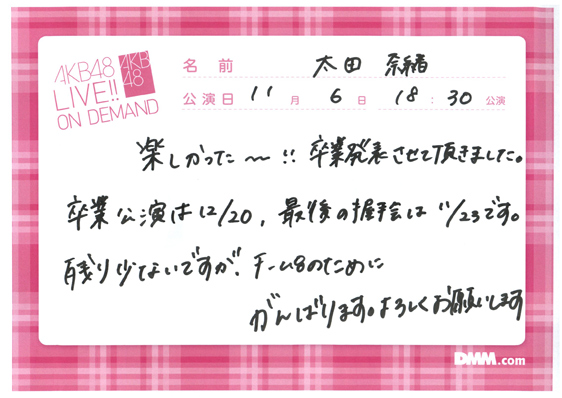 AKB48
LIVE!!
ON DEMAND
AKB
48
名前 太田 奈緒
公演日 11月 6日 18:30 公演
楽しかった〜!! 卒業発表させて頂きました。
卒業公演は12/20、最後の握手会は11/23です。
残り少ないですが、チーム8のために
がんばります。よろしくお願いします
DMM.com